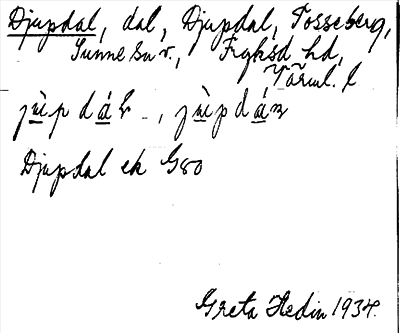 Djupdal, dal, Djupdal, Tosseberg,
Sunne sn v., Fryksd hd,
Värml. l
Djupdal ek G80
Greta Hedin 1934.